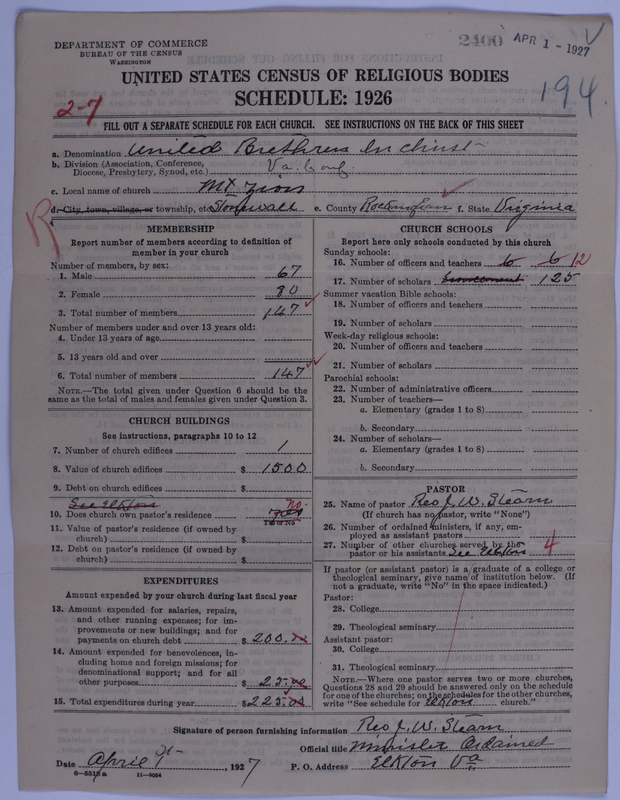 2400 APR 1 - 1927
DEPARTMENT OF COMMERCE
BUREAU OF THE CENSUS
WASHINGTON
UNITED STATES CENSUS OF RELIGIOUS BODIES
SCHEDULE: 1926
194
2-7
FILL OUT A SEPARATE SCHEDULE FOR EACH CHURCH. SEE INSTRUCTIONS ON THE BACK OF THIS SHEET
a. Denomination United Brethren In Christ
b. Division (Association, Conference, Diocese, Presbytery, Synod, etc.) Va. Conf
c. Local name of church Mt Zion
d. City, town, village, or township, etc. Stonewall e. County Rockingham f. State Virginia
R
MEMBERSHIP
Report number of members according to definition of
member in your church
Number of members, by sex:
1. Male 67
2. Female 80
3. Total number of members 147
Number of members under and over 13 years old:
4. Under 13 years of age
5. 13 years old and over
6. Total number of members 147
NOTE.—The total given under Question 6 should be
same as the total of males and females given under Question 3.
CHURCH BUILDINGS
See instructions, paragraphs 10 to 12
7. Number of church edifices 1
8. Value of church edifices $ 1500
9. Debt on church edifices $
See Elkton no
10. Does church own pastor's residence yes
Yes or No
11. Value of pastor's residence (if owned by
church) $
12. Debt on pastor's residence (if owned by
church) $
EXPENDITURES
Amount expended by your church during last fiscal year
13. Amount expended for salaries, repairs,
and other running expenses; for im-
provements or new buildings; and for
payments on church debt $ 200.00
14. Amount expended for benevolences, in-
cluding home and foreign missions; for
denominational support; and for all
other purposes $ 25.00
15. Total expenditures during year $ 225.00
CHURCH SCHOOLS
Report here only schools conducted by this church
Sunday schools:
16. Number of officers and teachers 6 6 12
17. Number of scholars 125
Summer vacation Bible schools:
18. Number of officers and teachers
19. Number of scholars
Week-day religious schools:
20. Number of officers and teachers
21. Number of scholars
Parochial schools:
22. Number of administrative officers
23. Number of teachers—
a. Elementary (grades 1 to 8)
b. Secondary
24. Number of scholars—
a. Elementary (grades 1 to 8)
b. Secondary
PASTOR
25. Name of pastor Rev J. W. Stearn
(If church has no pastor, write "None")
26. Number of ordained ministers, if any, em-
ployed as assistant pastors
27. Number of other churches served by the
pastor or his assistants See Elkton 4
If pastor (or assistant pastor) is a graduate of a college or
theological seminary, give name of institution below. (If
not a graduate, write "No" in the space indicated.)
Pastor:
28. College
29. Theological seminary
Assistant pastor:
30. College
31. Theological seminary
NOTE.—Where one pastor serves two or more churches,
Questions 28 and 29 should be answered only on the schedule
for one of the churches; on the schedules for the other churches,
write "See schedule for Elkton church."
Signature of person furnishing information Rev J. W. Stearn
Official title Minister Ordained
Date April 1st, 1927 P. O. Address Elkton Va
8-5515a 11-9084